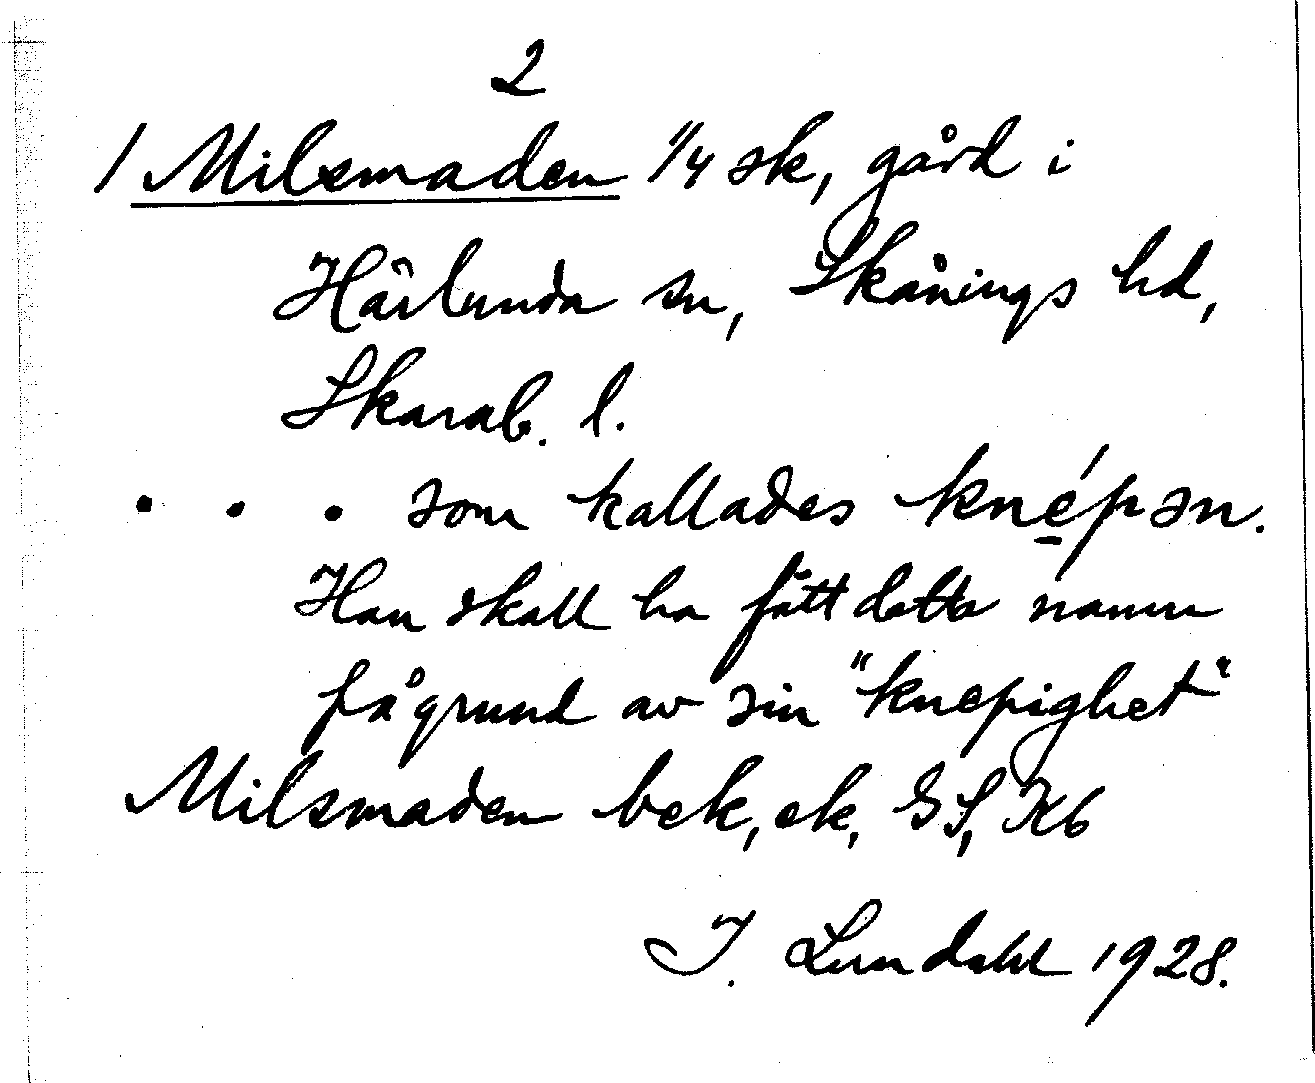 2
1 Milsmaden 1/4 sk, gård i
Härlunda sn, Skånings hd,
Skarab. l.
. . . som kallades kné̱pən.
Han skall ha fått detta namn
på grund av sin "knepighet"
Milsmaden bek, ek, GS, Kb
I. Lundahl 1928.